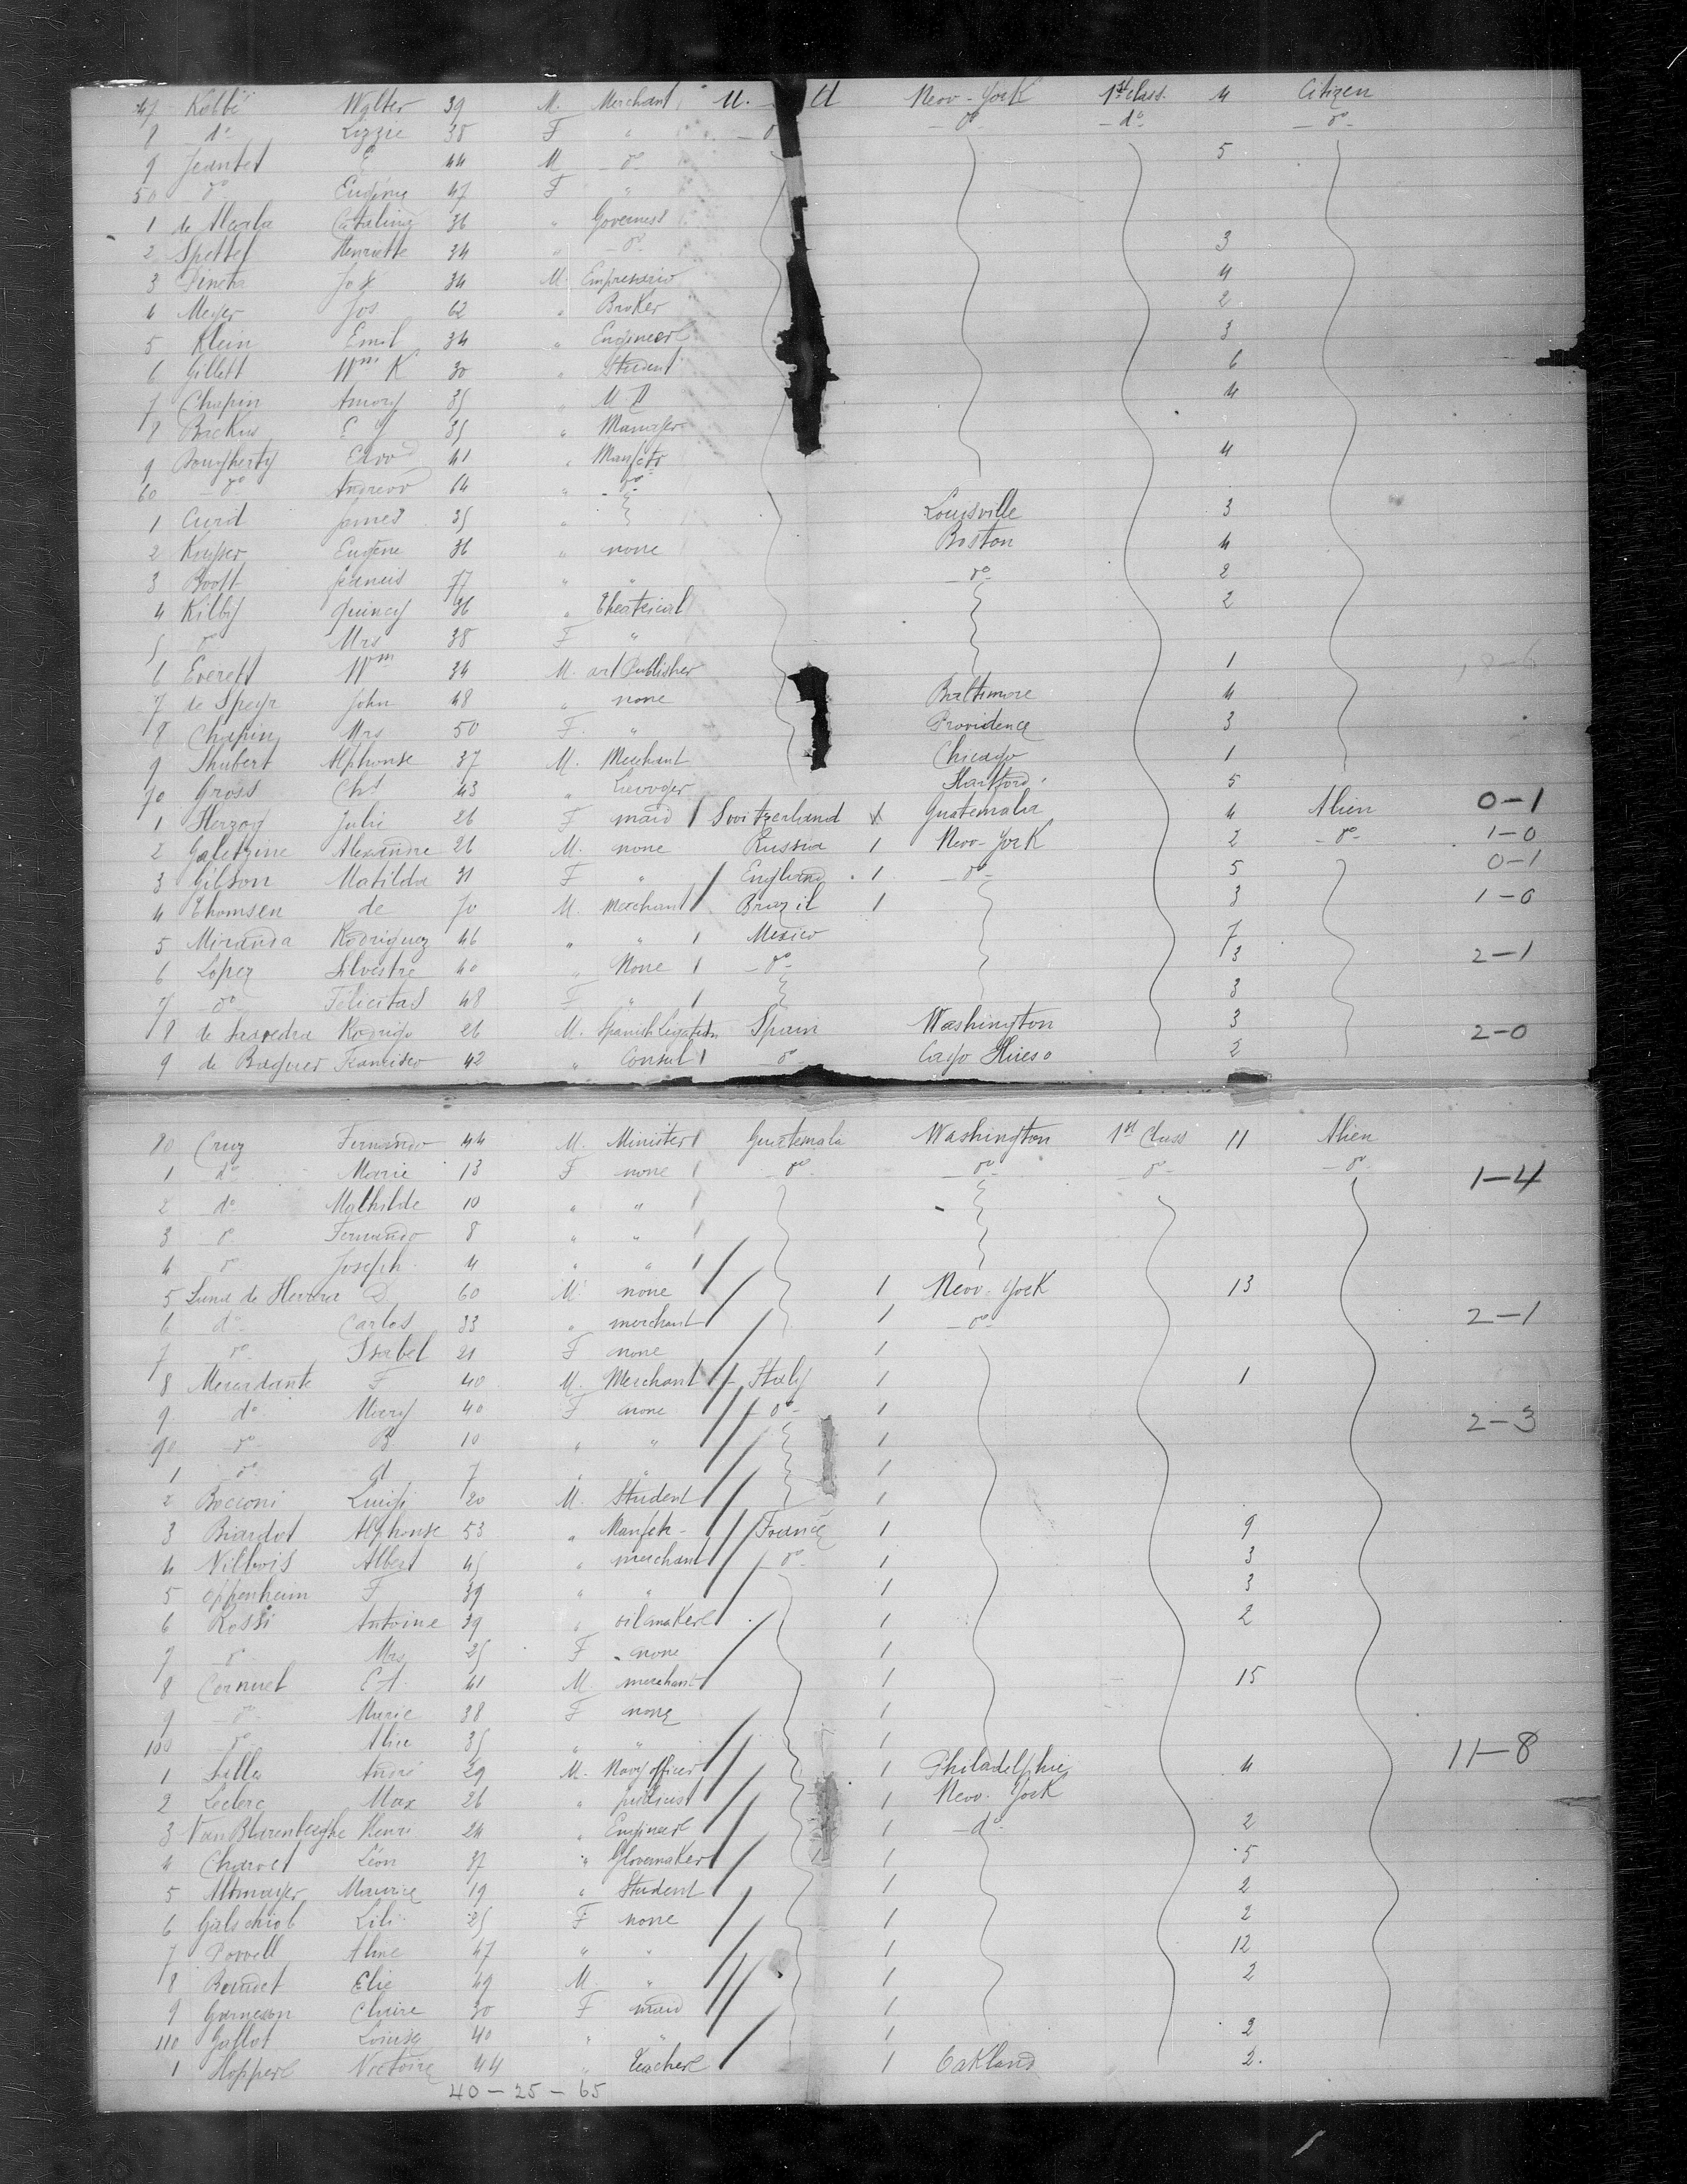 47 Kobbé Walter 39 M. Merchant U. New-York 1st class. 4 Citizen
8 do Lizzie 38 F " do do do
9 Jeantet E 44 M do 5
50 do Eugénie 47 F "
1 de Alcala Catalina 36 " Governess
2 Henriette 34 " do 3
3 34 M. Empresario 4
6 Meyer Jos 62 " Broker 2
5 Klein Emil 34 " Engineer 3
6 Gillett Wm K 30 " Student 6
7 Chapin Amory 35 " M D 4
8 Backus E J 35 " Manager
9 Dougherty Edwd 41 " Manfctr 4
60 do Andrew 64 " do
1 James 35 " Louisville 3
2 Kuyper Eugène 36 " none Boston 4
3 Boott Francis 77 " " do 2
4 Kilby Quincy 36 " Theatrical 2
5 do Mrs 38 F "
6 Everett Wm 34 M. art Publisher 1
7 de Speyr John 48 " none Baltimore 4
8 Chapin Mrs 50 F. " Providence 3
9 Shubert Alphonse 37 M. Merchant Chicago 1
70 Gross Chs 43 " Lawyer Hartford 5
1 Herzog Julie 26 F maid 1 Switzerland x Guatemala 4 Alien 0-1
2 Galetzine Alexandre 26 M. none Russia 1 New-York 2 do 1-0
3 Gilson Matilda 31 F " England 1 do 5 0-1
4 Thomsen de 70 M. Merchant Brazil 1 3 1-0
5 Miranda Rodriguez 46 " " 1 Mexico 7
6 Lopez Silvestre 40 " None 1 do 3 2-1
7 do Felicitas 48 F " 1 3
8 de Saavedra Rodrigo 26 M. Spanish Legation Spain Washington 3 2-0
9 de Baguer Francisco 42 " Consul 1 do Cayo Hueso 2
80 Cruz Fernando 44 M. Minister Guatemala Washington 1st Class 11 Alien
1 do Marie 13 F none 1 do do do do 1-4
2 do Mathilde 10 " " 1
3 do Fernando 8 " " 1
4 do Joseph 4 " " 1
5 Luna de Herrera D 60 M. none 1 New-York 13
6 do Carlos 33 " merchant 1 do 2-1
7 do Isabel 21 F none 1
8 Mercadante F 40 M. Merchant Italy 1 1
9 do Mary 40 F none do 1 2-3
90 do B 10 " " 1
1 do A 7 " " 1
2 Bocconi Luigi 20 M. Student 1
3 Biardot Alphonse 53 " Manfctr France 1 9
4 Vilbois Albert 45 " merchant do 1 3
5 Oppenheim F 39 " " 1 3
6 Rossi Antoine 39 " oilmaker 1 2
7 do Mrs 25 F none 1
8 Cornuel 41 M. merchant 1 15
9 do Marie 38 F none 1
100 do Alice 35 " " 1 11-8
1 André 29 M. Navy officer 1 Philadelphie 4
2 Leclerc Max 26 " publicist 1 New-York
3 Van Blarenberghe Henri 24 " Engineer 1 do 2
4 Charvet Léon 37 " Glovemaker 1 5
5 Altmayer Maurice 19 " Student 1 2
6 Galschiot Lili 25 F none 1 2
7 Powell Aline 47 " " 1 12
8 Baudet Elie 49 M " 1 2
9 Garneson Claire 30 F maid 1
110 Gallot Louise 40 " " 1 2
1 Hopper Victoire 44 " teacher 1 Oakland 2.
40-25-65